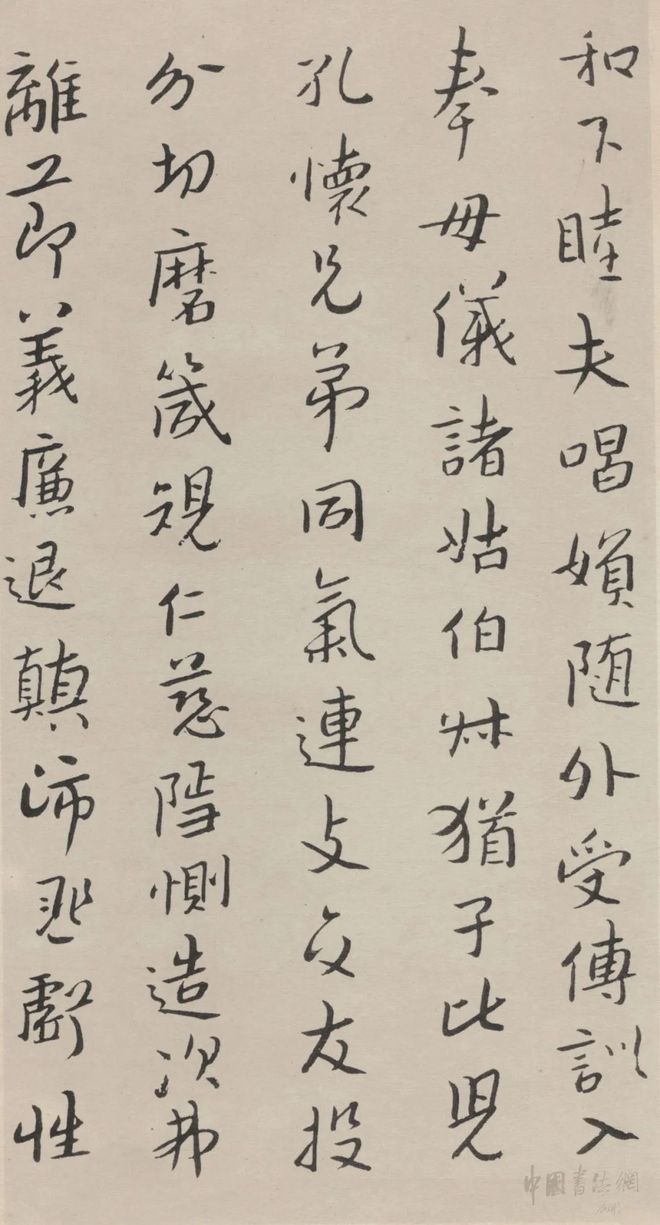 和下睦夫唱婦随外受傅訓入
奉母儀諸姑伯叔猶子比兒
孔懷兄弟同氣連支交友投
分切磨箴規仁慈隱惻造次弗
離工節義廉退顛沛匪虧性
中國書法網